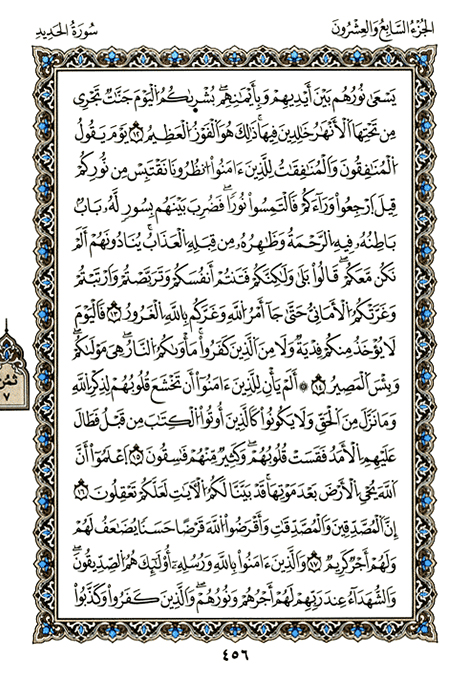 الجُزْءُ السَّابِعُ وَالعِشْرُونَ
سُورَةُ الحَدِيدِ
يَسْعَىٰ نُورُهُم بَيْنَ أَيْدِيهِمْ وَبِأَيْمَٰنِهِم بُشْرَىٰكُمُ الْيَوْمَ جَنَّٰتٌ تَجْرِي
مِن تَحْتِهَا الْأَنْهَٰرُ خَٰلِدِينَ فِيهَا ذَٰلِكَ هُوَ الْفَوْزُ الْعَظِيمُ ١٢ يَوْمَ يَقُولُ
الْمُنَٰفِقُونَ وَالْمُنَٰفِقَٰتُ لِلَّذِينَ ءَامَنُوا انظُرُونَا نَقْتَبِسْ مِن نُّورِكُمْ
قِيلَ ارْجِعُوا وَرَآءَكُمْ فَالْتَمِسُوا نُورًا فَضُرِبَ بَيْنَهُم بِسُورٍ لَّهُ بَابٌ
بَاطِنُهُ فِيهِ الرَّحْمَةُ وَظَٰهِرُهُ مِن قِبَلِهِ الْعَذَابُ يُنَادُونَهُمْ أَلَمْ
نَكُن مَّعَكُمْ قَالُوا بَلَىٰ وَلَٰكِنَّكُمْ فَتَنتُمْ أَنفُسَكُمْ وَتَرَبَّصْتُمْ وَارْتَبْتُمْ
وَغَرَّتْكُمُ الْأَمَانِيُّ حَتَّىٰ جَا أَمْرُ اللَّهِ وَغَرَّكُم بِاللَّهِ الْغَرُورُ ١٣ فَالْيَوْمَ
لَا يُؤْخَذُ مِنكُمْ فِدْيَةٌ وَلَا مِنَ الَّذِينَ كَفَرُوا مَأْوَىٰكُمُ النَّارُ هِيَ مَوْلَىٰكُمْ
وَبِئْسَ الْمَصِيرُ ١٤ أَلَمْ يَأْنِ لِلَّذِينَ ءَامَنُوا أَن تَخْشَعَ قُلُوبُهُمْ لِذِكْرِ اللَّهِ
وَمَا نَزَلَ مِنَ الْحَقِّ وَلَا يَكُونُوا كَالَّذِينَ أُوتُوا الْكِتَٰبَ مِن قَبْلُ فَطَالَ
عَلَيْهِمُ الْأَمَدُ فَقَسَتْ قُلُوبُهُمْ وَكَثِيرٌ مِّنْهُمْ فَٰسِقُونَ ١٥ اعْلَمُوا أَنَّ
اللَّهَ يُحْيِ الْأَرْضَ بَعْدَ مَوْتِهَا قَدْ بَيَّنَّا لَكُمُ الْآيَٰتِ لَعَلَّكُمْ تَعْقِلُونَ ١٦
إِنَّ الْمُصَّدِّقِينَ وَالْمُصَّدِّقَٰتِ وَأَقْرَضُوا اللَّهَ قَرْضًا حَسَنًا يُضَٰعَفُ لَهُمْ
وَلَهُمْ أَجْرٌ كَرِيمٌ ١٧ وَالَّذِينَ ءَامَنُوا بِاللَّهِ وَرُسُلِهِ أُوْلَٰئِكَ هُمُ الصِّدِّيقُونَ
وَالشُّهَدَآءُ عِندَ رَبِّهِمْ لَهُمْ أَجْرُهُمْ وَنُورُهُمْ وَالَّذِينَ كَفَرُوا وَكَذَّبُوا
ثُمُن
٧
٤٥٦